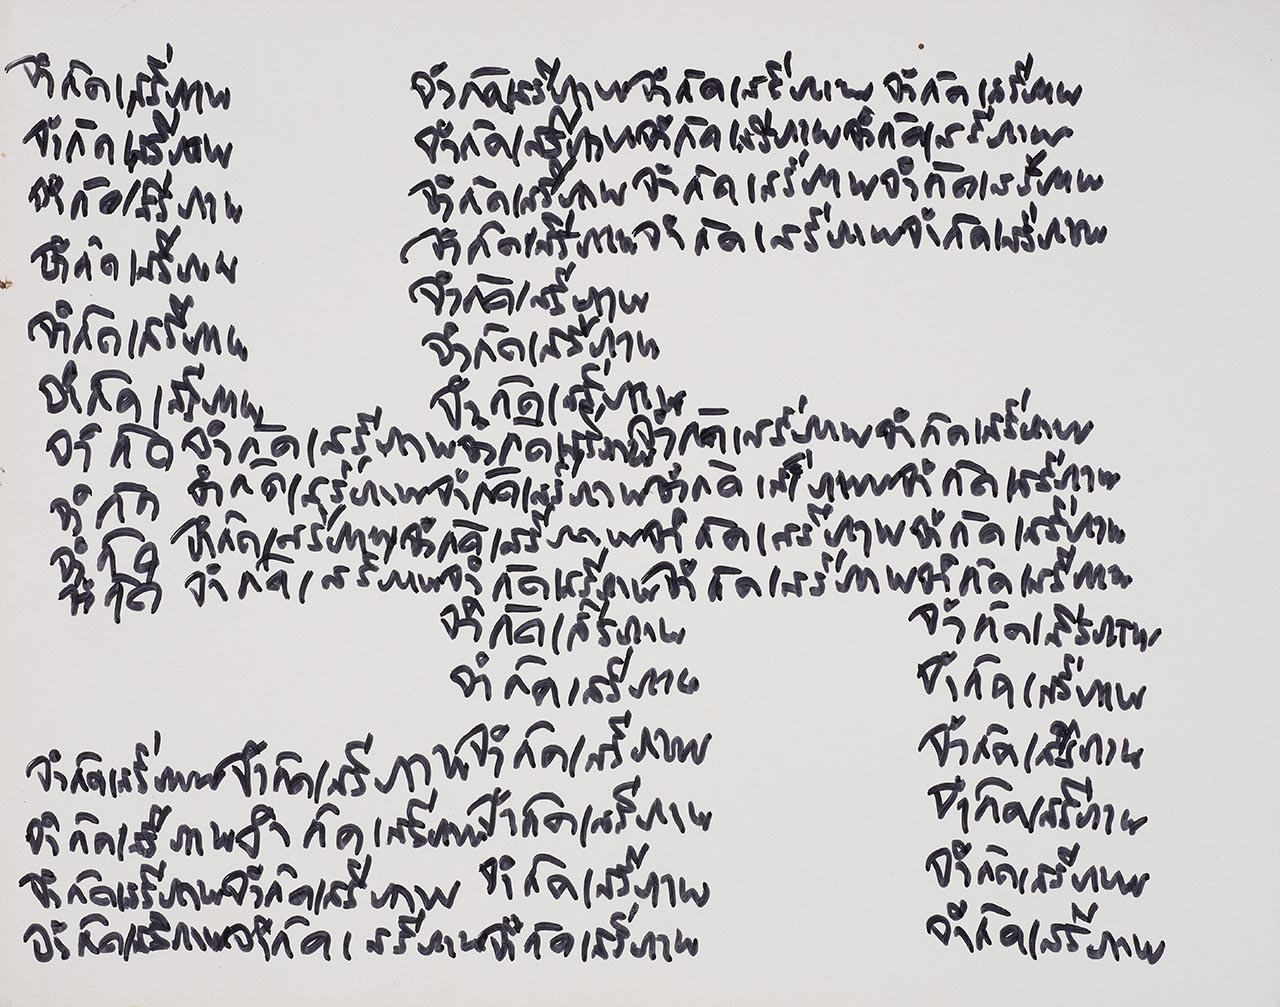 จำกัดเสรีภาพ จำกัดเสรีภาพจำกัดเสรีภาพ จำกัดเสรีภาพ
จำกัดเสรีภาพ จำกัดเสรีภาพจำกัดเสรีภาพจำกัดเสรีภาพ
จำกัดเสรีภาพ จำกัดเสรีภาพ จำกัดเสรีภาพจำกัดเสรีภาพ
จำกัดเสรีภาพ จำกัดเสรีภาพจำกัดเสรีภาพจำกัดเสรีภาพ
จำกัดเสรีภาพ
จำกัดเสรีภาพ จำกัดเสรีภาพ
จำกัดเสรีภาพ จำกัดเสรีภาพ
จำกัด จำกัดเสรีภาพจำกัดเสรีภาพจำกัดเสรีภาพจำกัดเสรีภาพ
จำกัด จำกัดเสรีภาพจำกัดเสรีภาพจำกัดเสรีภาพจำกัดเสรีภาพ
จำกัด จำกัดเสรีภาพจำกัดเสรีภาพจำกัดเสรีภาพจำกัดเสรีภาพ
จำกัด จำกัดเสรีภาพจำกัดเสรีภาพจำกัดเสรีภาพจำกัดเสรีภาพ
จำกัดเสรีภาพ จำกัดเสรีภาพ
จำกัดเสรีภาพ จำกัดเสรีภาพ
จำกัดเสรีภาพจำกัดเสรีภาพจำกัดเสรีภาพ จำกัดเสรีภาพ
จำกัดเสรีภาพจำกัดเสรีภาพจำกัดเสรีภาพ จำกัดเสรีภาพ
จำกัดเสรีภาพจำกัดเสรีภาพ จำกัดเสรีภาพ จำกัดเสรีภาพ
จำกัดเสรีภาพจำกัดเสรีภาพจำกัดเสรีภาพ จำกัดเสรีภาพ